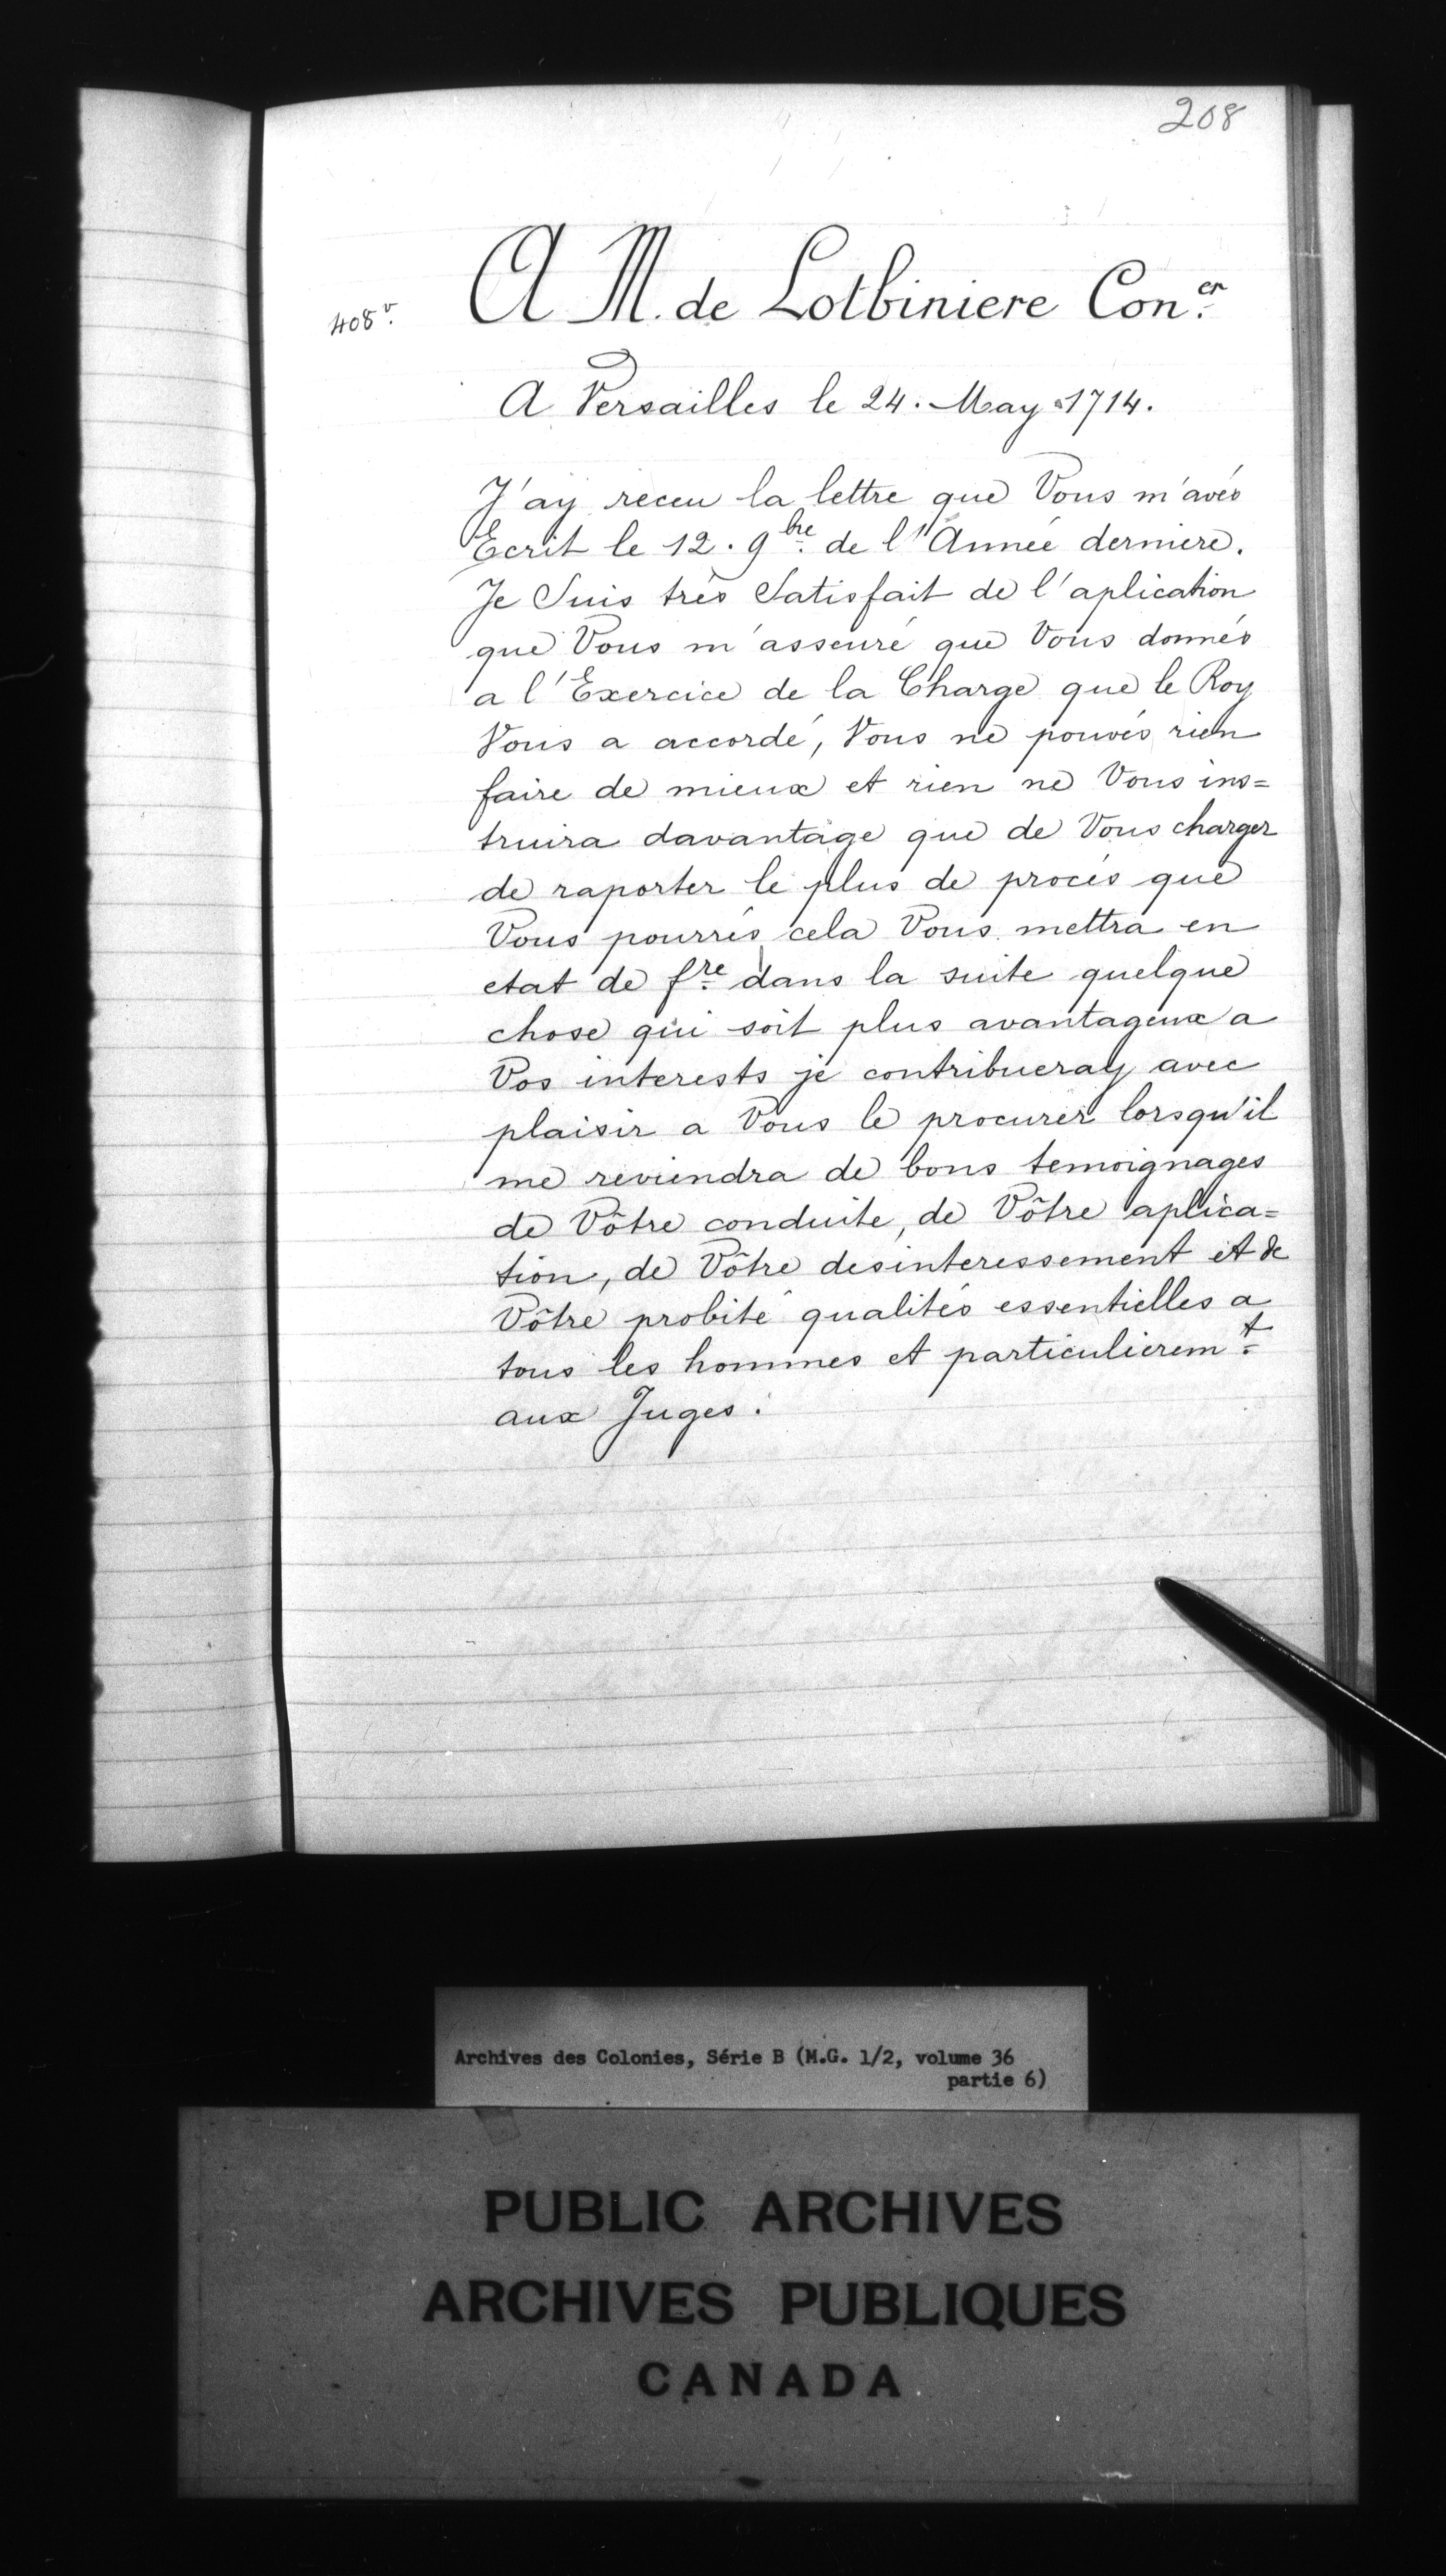 208
408v.
A M. de Lotbiniere Con.er
A Versailles le 24. May 1714.
J'ay receu la lettre que Vous m'avés
Ecrit le 12. 9bre. de l'Année derniere.
Je Suis trés Satisfait de l'aplication
que Vous m'asseuré que Vous donnés
a l'Exercice de la Charge que le Roy
Vous a accordé, Vous ne pouvés rien
faire de mieux et rien ne Vous ins=
truira davantage que de Vous charger
de raporter le plus de procés que
Vous pourrés cela Vous mettra en
etat de fre. dans la suite quelque
chose qui soit plus avantageux a
Vos interests je contribueray avec
plaisir a Vous le procurer lorsqu'il
me reviendra de bons temoignages
de Vôtre conduite, de Vôtre aplica=
tion, de Vôtre desinteressement et de
Vôtre probité qualités essentielles a
tous les hommes et particulierem.t
aux Juges.
Archives des Colonies, Série B (M.G. 1/2, volume 36
partie 6)
PUBLIC ARCHIVES
ARCHIVES PUBLIQUES
CANADA